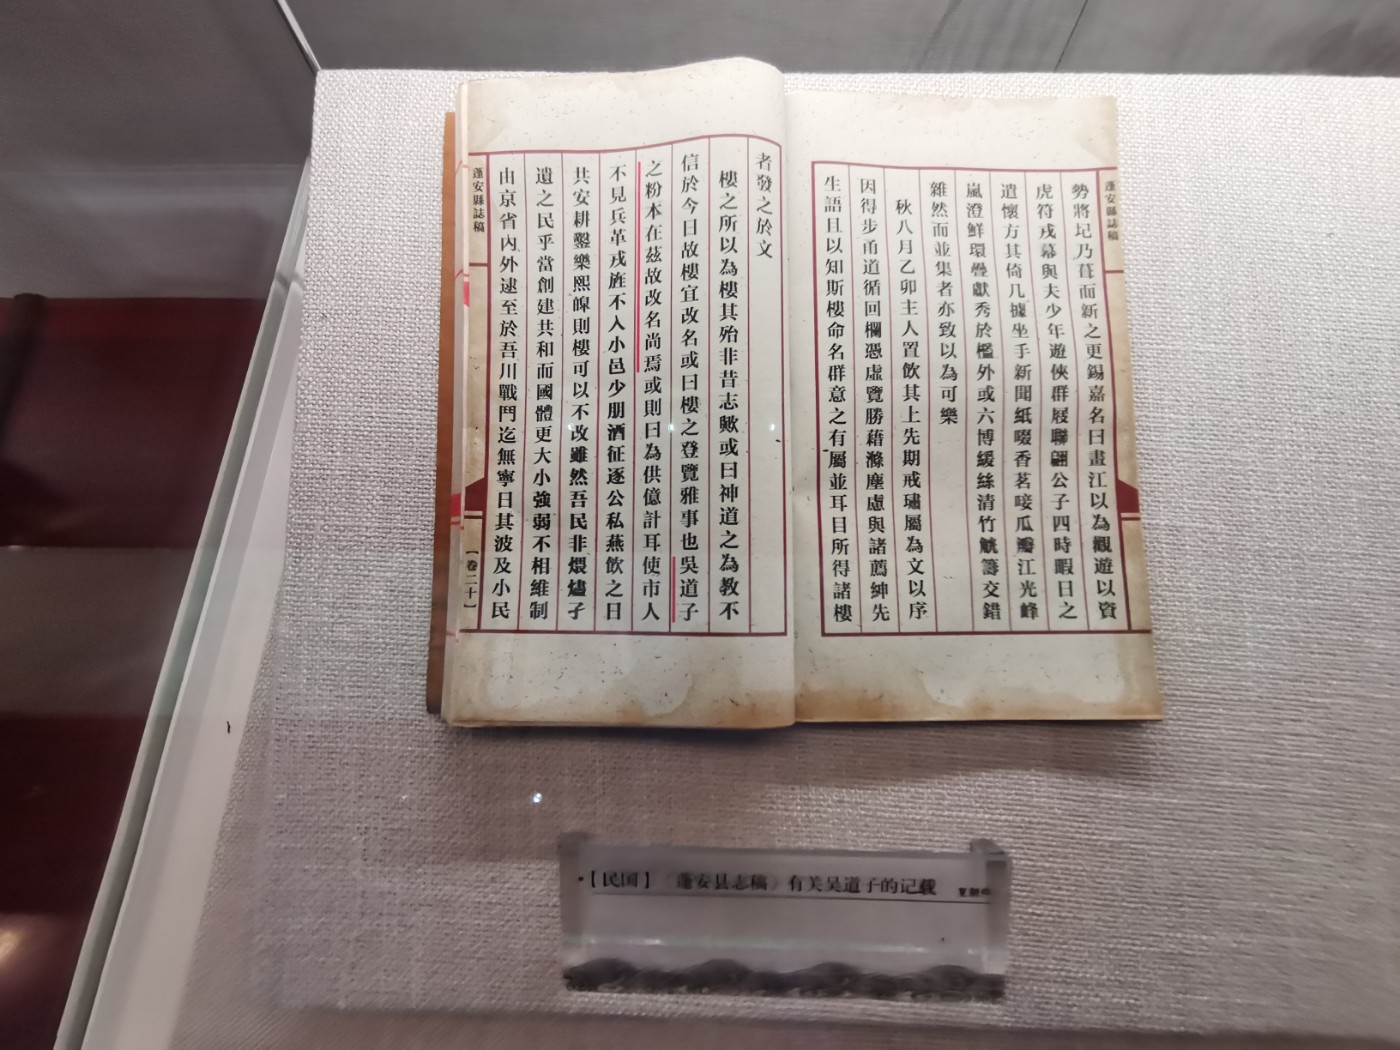 蓬安縣誌稿
勢將圮乃葺而新之更錫嘉名曰畫江以為觀遊以資
虎符戎幕與夫少年遊俠群屐聯翩公子四時暇日之
遣懷方其倚几據坐手新聞紙啜香茗唼瓜瓣江光峰
嵐澄鮮環疊獻秀於檻外或六博緩絲清竹觥籌交錯
雜然而並集者亦致以為可樂
秋八月乙卯主人置飲其上先期戒璛屬為文以序
因得步甬道循回欄憑虛覽勝藉滌塵慮與諸薦紳先
生語且以知斯樓命名群意之有屬並耳目所得諸樓
者發之於文
樓之所以為樓其殆非昔志歟或曰神道之為教不
信於今日故樓宜改名或曰樓之登覽雅事也吳道子
之粉本在茲故改名尚焉或則曰為供億計耳使市人
不見兵革戎旌不入小邑少朋酒征逐公私燕飲之日
共安耕鑿樂熙皞則樓可以不改雖然吾民非煨燼孑
遺之民乎當創建共和而國體更大小強弱不相維制
由京省內外逮至於吾川戰鬥迄無寧日其波及小民
蓬安縣誌稿
【卷二十】
·【民国】《蓬安县志稿》有关吴道子的记载